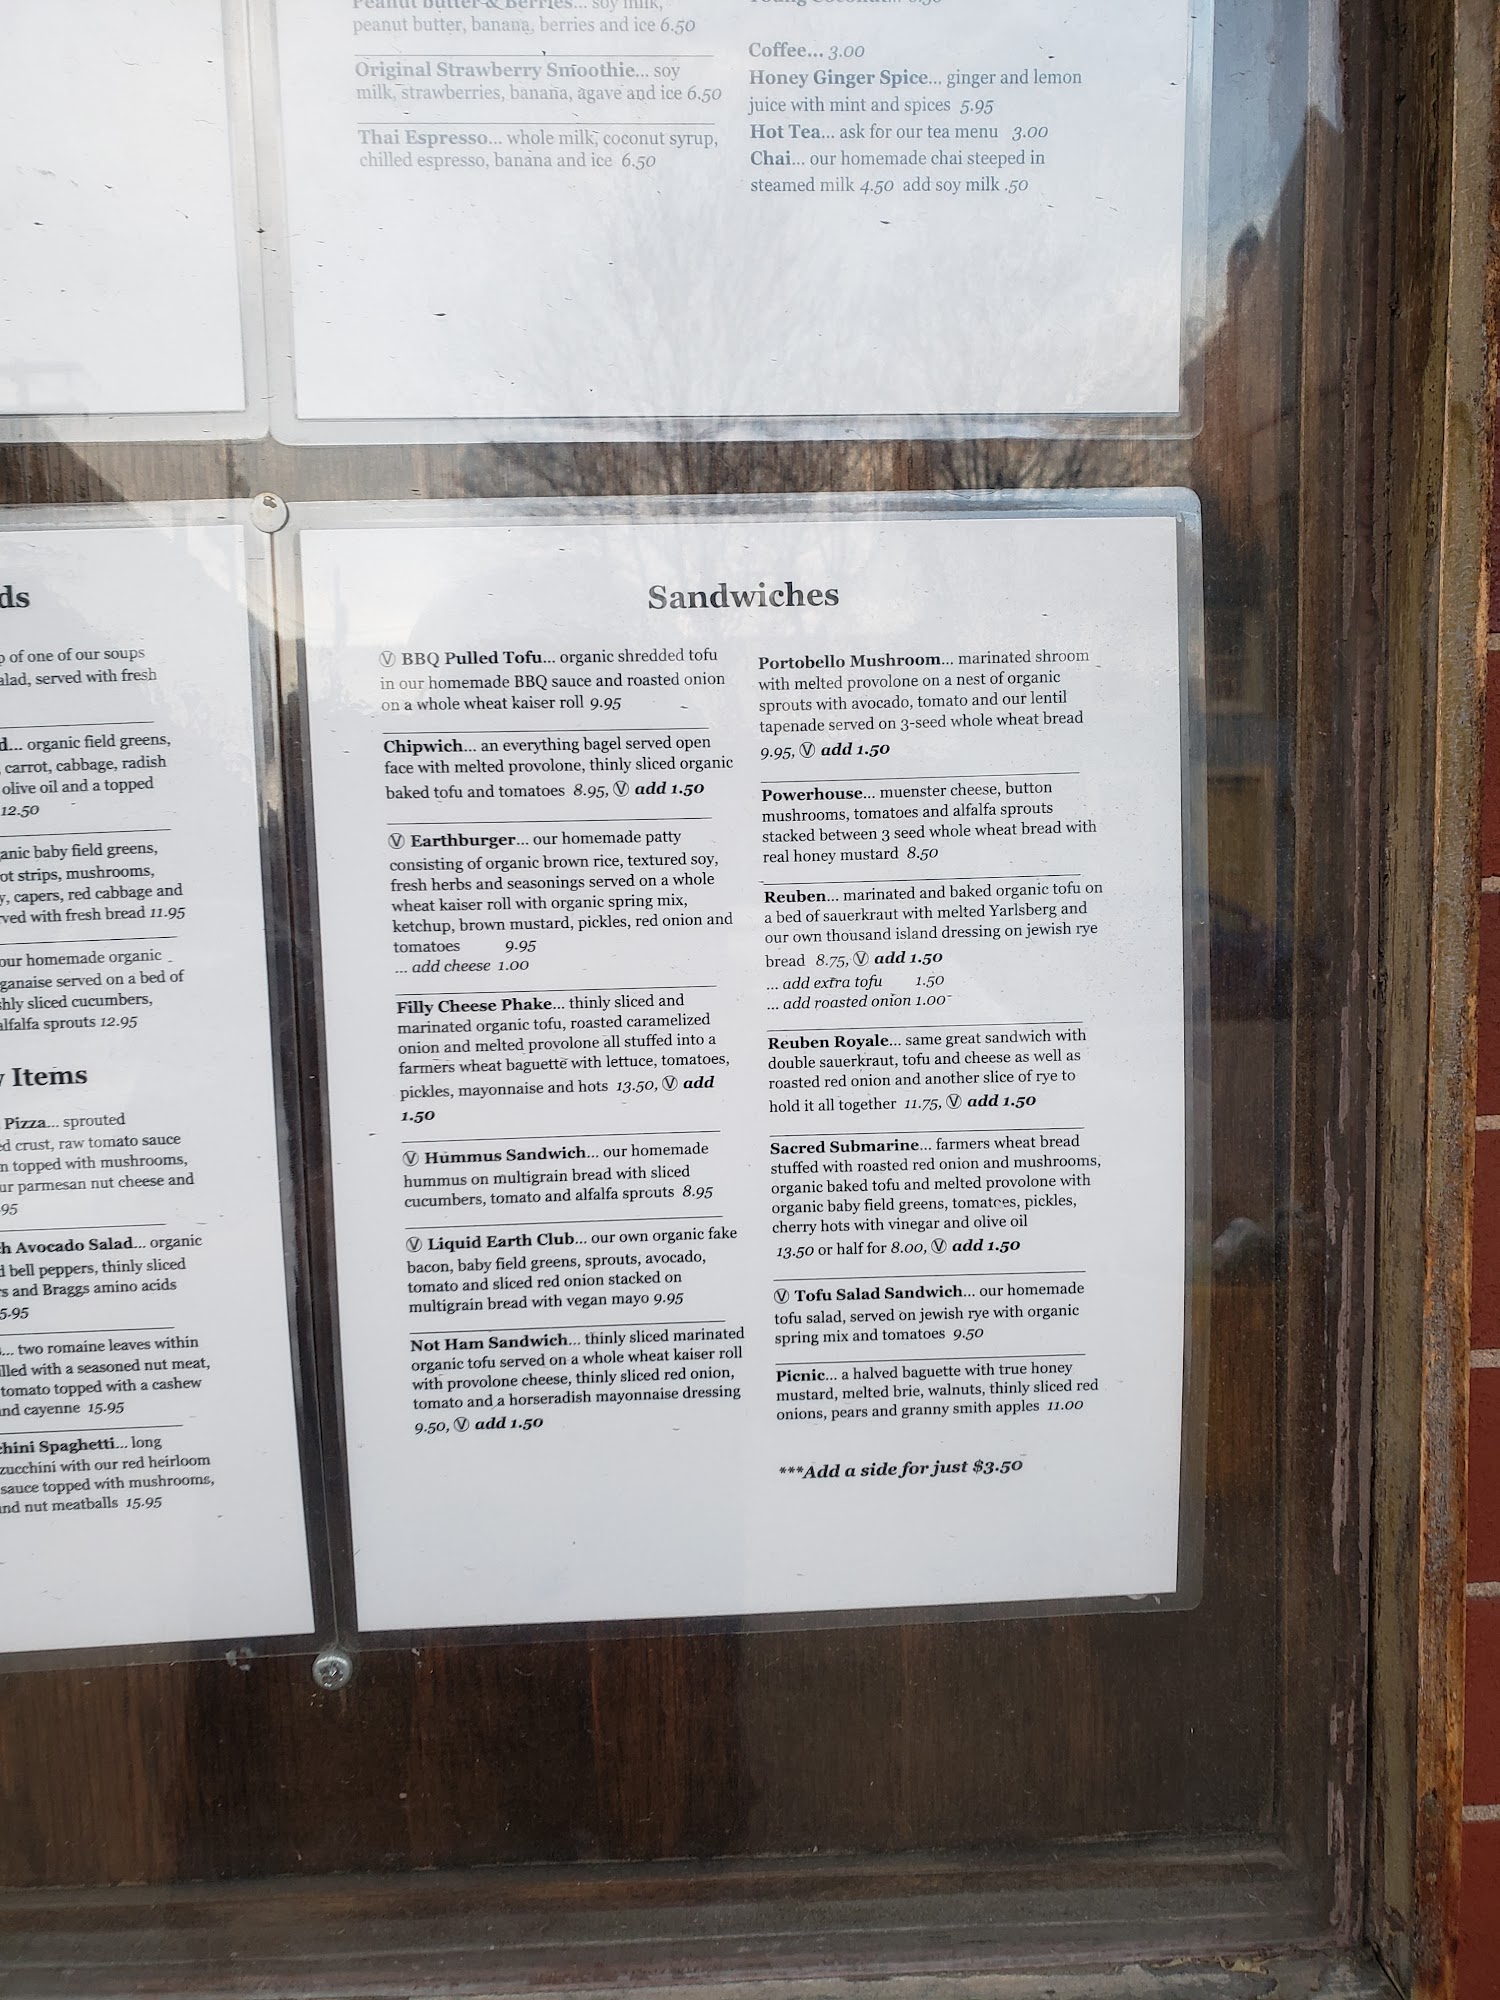 Peanut Butter & Berries... soy milk,
peanut butter, banana, berries and ice 6.50
Original Strawberry Smoothie... soy
milk, strawberries, banana, agave and ice 6.50
Thai Espresso... whole milk, coconut syrup,
chilled espresso, banana and ice 6.50
Coffee... 3.00
Honey Ginger Spice... ginger and lemon
juice with mint and spices 5.95
Hot Tea... ask for our tea menu 3.00
Chai... our homemade chai steeped in
steamed milk 4.50 add soy milk .50
ds
of one of our soups
alad, served with fresh
d... organic field greens,
carrot, cabbage, radish
olive oil and a topped
12.50
anic baby field greens,
ot strips, mushrooms,
y, capers, red cabbage and
ved with fresh bread 11.95
our homemade organic
ganaise served on a bed of
hly sliced cucumbers,
alfalfa sprouts 12.95
Items
Pizza... sprouted
ed crust, raw tomato sauce
n topped with mushrooms,
ur parmesan nut cheese and
95
h Avocado Salad... organic
d bell peppers, thinly sliced
rs and Braggs amino acids
5.95
... two romaine leaves within
illed with a seasoned nut meat,
tomato topped with a cashew
nd cayenne 15.95
chini Spaghetti... long
zucchini with our red heirloom
sauce topped with mushrooms,
nd nut meatballs 15.95
Sandwiches
Ⓥ BBQ Pulled Tofu... organic shredded tofu
in our homemade BBQ sauce and roasted onion
on a whole wheat kaiser roll 9.95
Chipwich... an everything bagel served open
face with melted provolone, thinly sliced organic
baked tofu and tomatoes 8.95, Ⓥ add 1.50
Ⓥ Earthburger... our homemade patty
consisting of organic brown rice, textured soy,
fresh herbs and seasonings served on a whole
wheat kaiser roll with organic spring mix,
ketchup, brown mustard, pickles, red onion and
tomatoes 9.95
... add cheese 1.00
Filly Cheese Phake... thinly sliced and
marinated organic tofu, roasted caramelized
onion and melted provolone all stuffed into a
farmers wheat baguette with lettuce, tomatoes,
pickles, mayonnaise and hots 13.50, Ⓥ add
1.50
Ⓥ Hummus Sandwich... our homemade
hummus on multigrain bread with sliced
cucumbers, tomato and alfalfa sprouts 8.95
Ⓥ Liquid Earth Club... our own organic fake
bacon, baby field greens, sprouts, avocado,
tomato and sliced red onion stacked on
multigrain bread with vegan mayo 9.95
Not Ham Sandwich... thinly sliced marinated
organic tofu served on a whole wheat kaiser roll
with provolone cheese, thinly sliced red onion,
tomato and a horseradish mayonnaise dressing
9.50, Ⓥ add 1.50
Portobello Mushroom... marinated shroom
with melted provolone on a nest of organic
sprouts with avocado, tomato and our lentil
tapenade served on 3-seed whole wheat bread
9.95, Ⓥ add 1.50
Powerhouse... muenster cheese, button
mushrooms, tomatoes and alfalfa sprouts
stacked between 3 seed whole wheat bread with
real honey mustard 8.50
Reuben... marinated and baked organic tofu on
a bed of sauerkraut with melted Yarlsberg and
our own thousand island dressing on jewish rye
bread 8.75, Ⓥ add 1.50
... add extra tofu 1.50
... add roasted onion 1.00
Reuben Royale... same great sandwich with
double sauerkraut, tofu and cheese as well as
roasted red onion and another slice of rye to
hold it all together 11.75, Ⓥ add 1.50
Sacred Submarine... farmers wheat bread
stuffed with roasted red onion and mushrooms,
organic baked tofu and melted provolone with
organic baby field greens, tomatoes, pickles,
cherry hots with vinegar and olive oil
13.50 or half for 8.00, Ⓥ add 1.50
Ⓥ Tofu Salad Sandwich... our homemade
tofu salad, served on jewish rye with organic
spring mix and tomatoes 9.50
Picnic... a halved baguette with true honey
mustard, melted brie, walnuts, thinly sliced red
onions, pears and granny smith apples 11.00
***Add a side for just $3.50